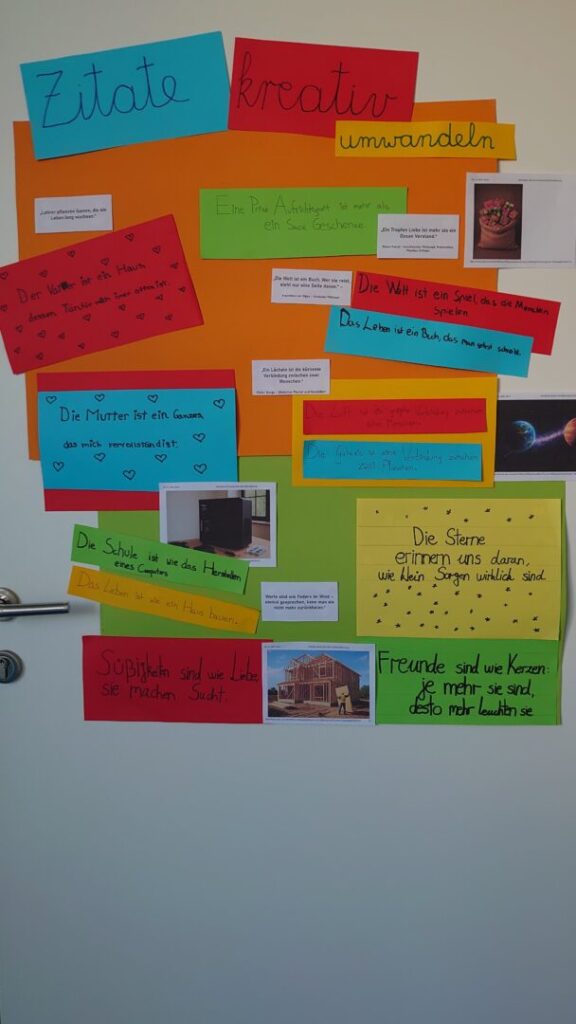 Zitate
kreativ
umwandeln
„Lehrer pflanzen Samen, die ein
Leben lang wachsen."
Eine Prise Aufrichtigkeit ist mehr als
ein Sack Geschenke.
„Ein Tropfen Liebe ist mehr als ein
Ozean Verstand."
Der Vater ist ein Haus
dessen Türe
offen ist.
„Die Welt ist ein Buch. Wer nie reist,
sieht nur eine Seite davon." -
Die Welt ist ein Spiel, das die Menschen
spielen
Das Leben ist ein Buch, das man selbst schreibt.
„Ein Lächeln ist die kürzeste
Verbindung zwischen zwei
Menschen."
Die Mutter ist ein
das mich
ist.
Die Luft ist die
Verbindung zwischen
Menschen.
Die
ist eine Verbindung zwischen
zwei Planeten.
Die Schule ist wie das Herstellen
eines Computers
Das Leben ist wie ein Haus bauen.
Worte sind wie Federn im Wind –
einmal gesprochen, kann man sie
nicht mehr zurückholen."
Die Sterne
erinnern uns daran,
wie klein Sorgen wirklich sind.
Süßigkeiten sind wie Liebe
sie machen Sucht.
Freunde sind wie Kerzen:
je mehr sie sind,
desto mehr leuchten sie